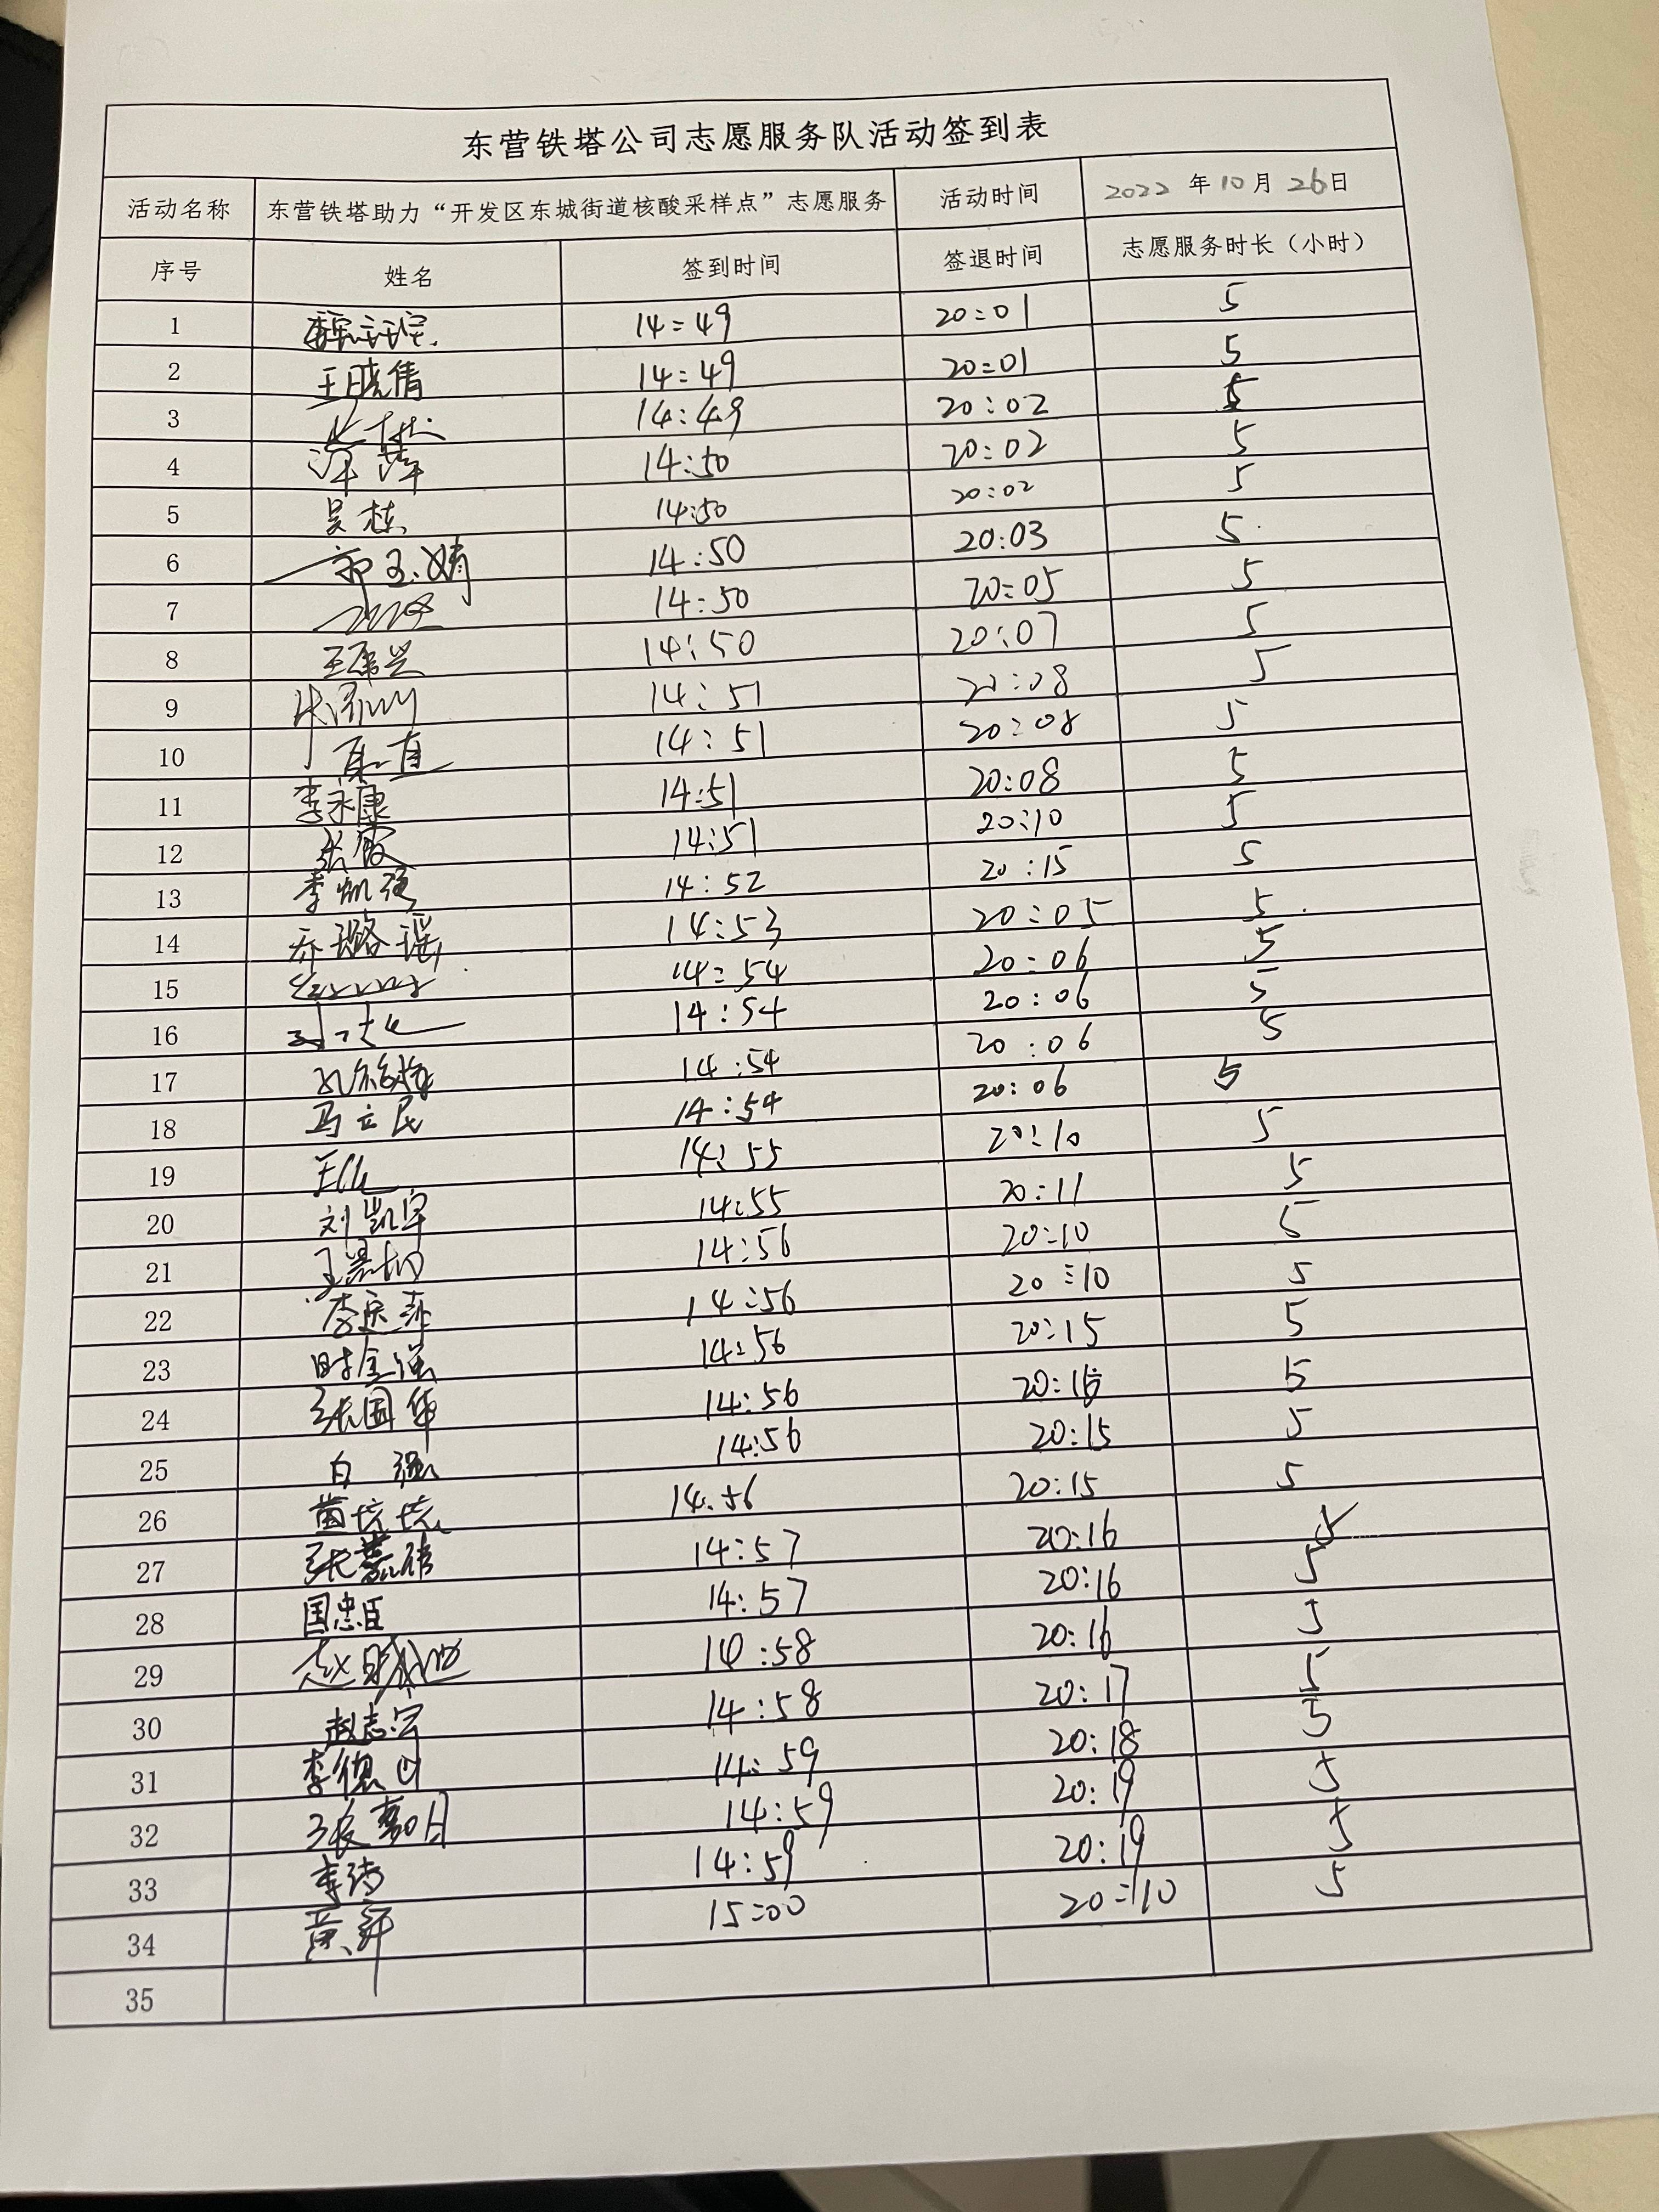 东营铁塔公司志愿服务队活动签到表
活动名称 东营铁塔助力“开发区东城街道核酸采样点”志愿服务 活动时间 2022年10月26日
序号 姓名 签到时间 签退时间 志愿服务时长（小时）
1 14:49 20:01 5
2 王晓倩 14:49 20:01 5
3 14:49 20:02 5
4 14:50 20:02 5
5 吴栋 14:50 20:02 5
6 郭玉婧 14:50 20:03 5
7 14:50 20:05 5
8 14:50 20:07 5
9 14:51 20:08 5
10 14:51 20:08 5
11 李永康 14:51 20:08 5
12 张霞 14:51 20:10 5
13 李凯强 14:52 20:15 5
14 乔璐瑶 14:53 20:05 5
15 14:54 20:06 5
16 14:54 20:06 5
17 14:54 20:06 5
18 马立民 14:54 20:06 5
19 14:55 20:10 5
20 刘凯军 14:55 20:11 5
21 14:56 20:10 5
22 14:56 20:10 5
23 时金强 14:56 20:15 5
24 张国华 14:56 20:15 5
25 白强 14:56 20:15 5
26 苗坑坑 14:56 20:15 5
27 14:57 20:16 5
28 国忠臣 14:57 20:16 5
29 14:58 20:16 5
30 赵志宇 14:58 20:17 5
31 14:59 20:18 5
32 14:59 20:19 5
33 李涛 14:59 20:19 5
34 15:00 20:10 5
35